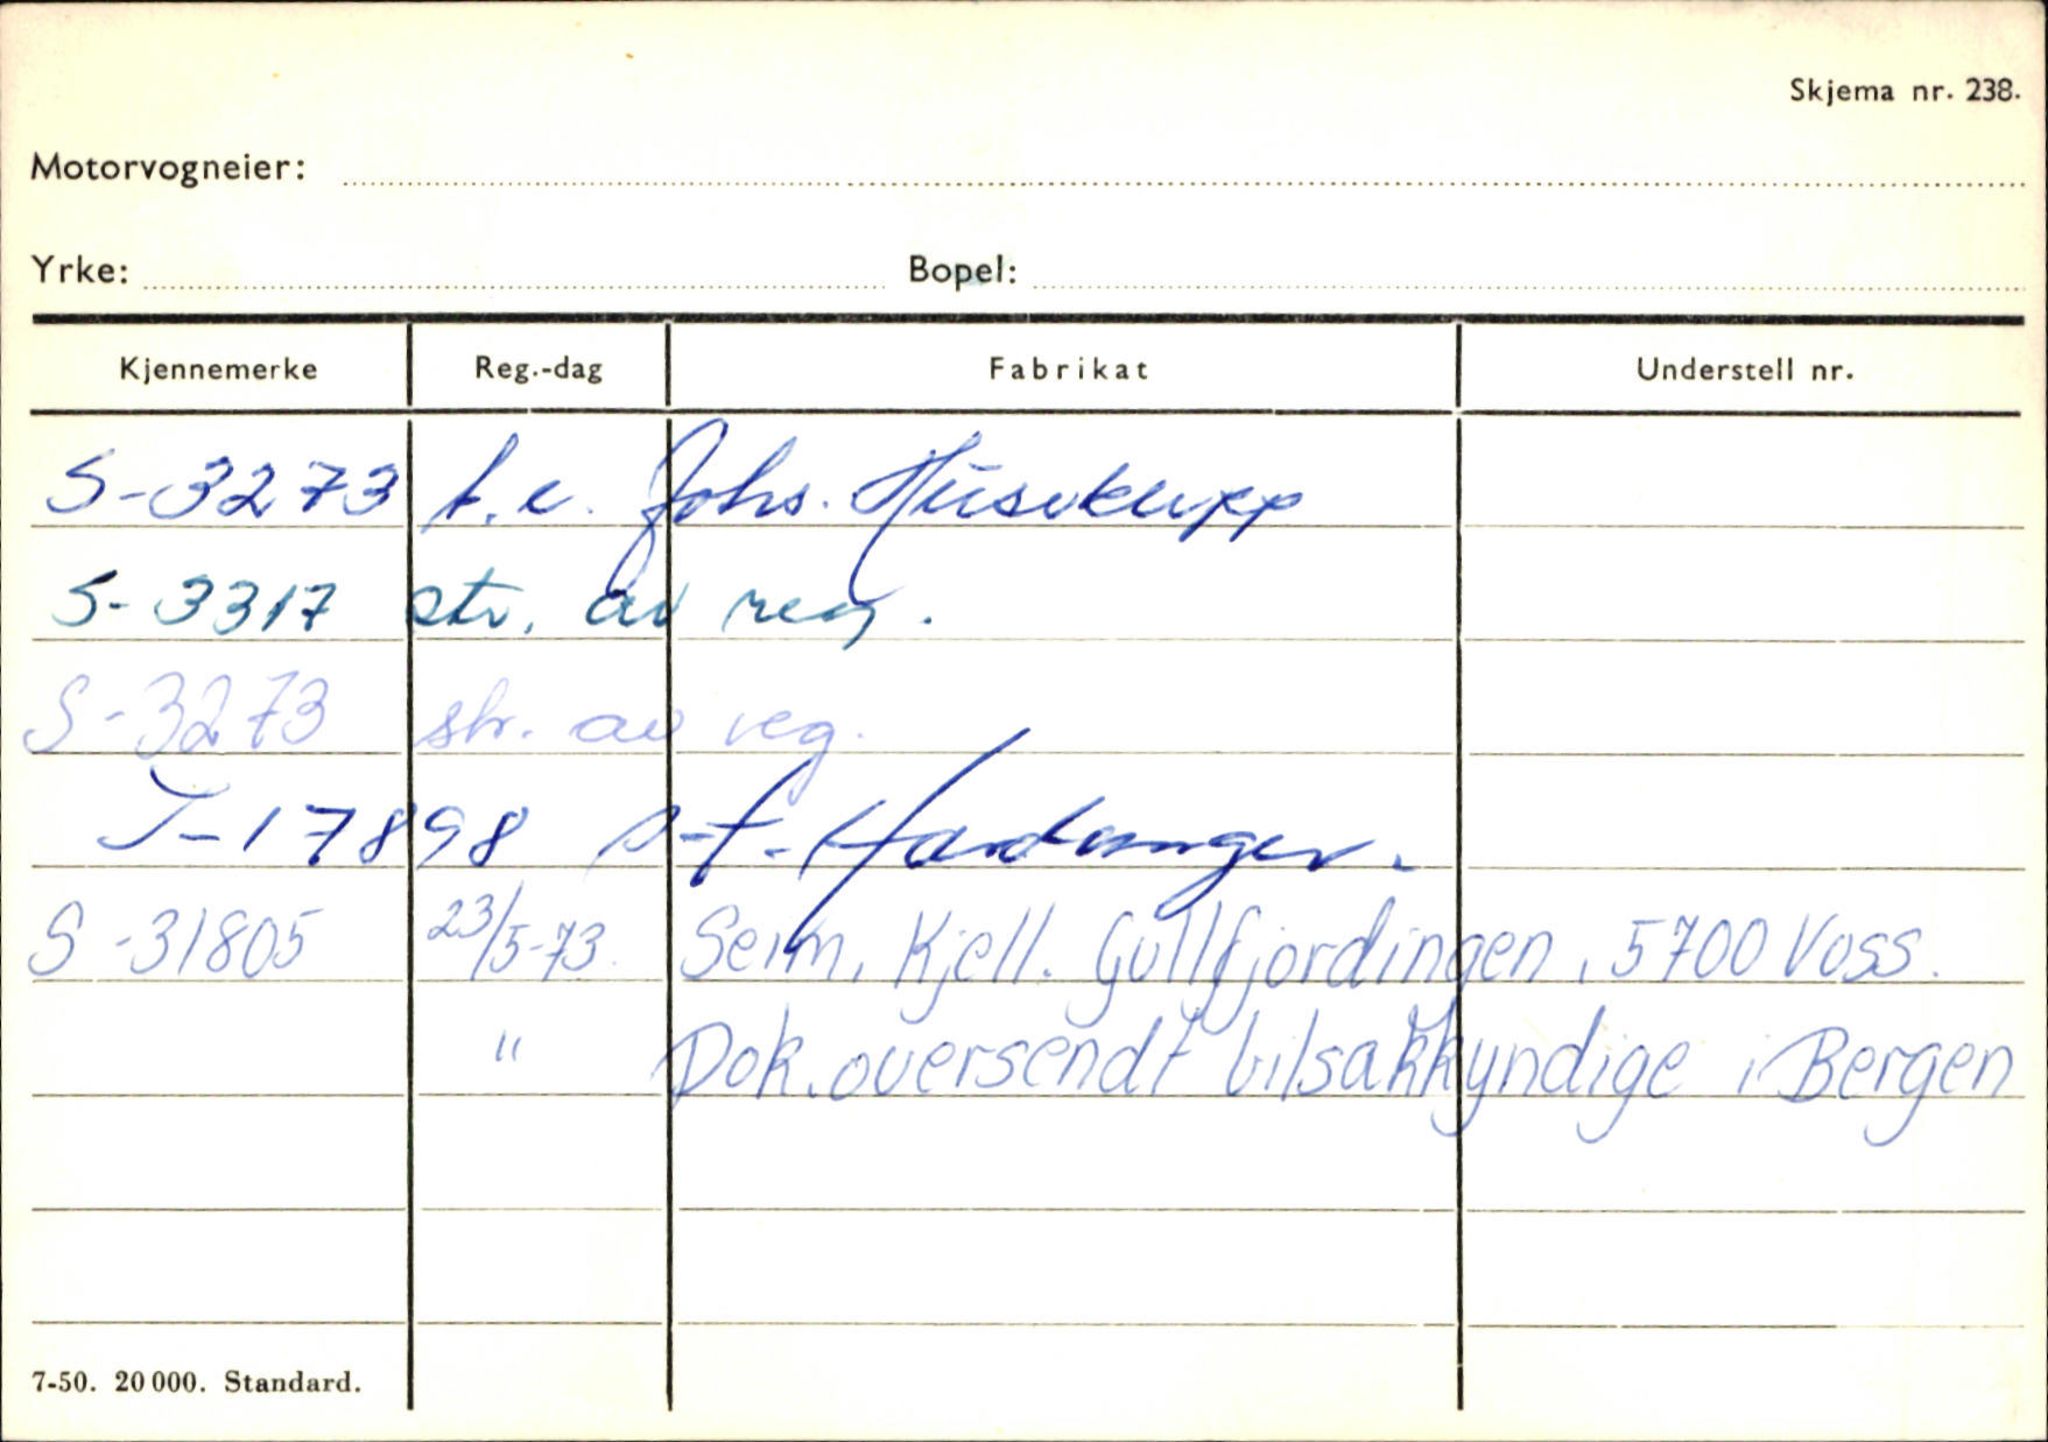 Skjema nr. 238.
Motorvogneier:
Yrke: Bopel:
Kjennemerke Reg.-dag Fabrikat Understell nr.
S-3273 t.e. Johs. Huseklepp
S-3317 str. av reg.
S-3273 str. av reg.
T-17898 Hardanger.
S-31805 23/5-73. Seim, Kjell. Gullfjordingen, 5700 Voss.
" Dok. oversendt bilsakkyndige i Bergen
7-50. 20 000. Standard.